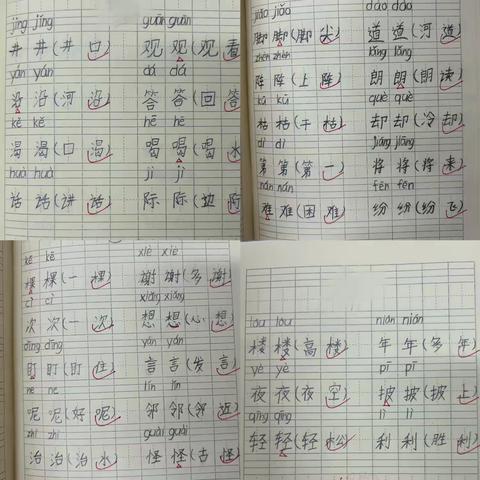 jǐng jǐng guān guān
井 井(井 口) 观 观(观 看)
yán yán dá dá
沿 沿(河 沿) 答 答(回 答)
kě kě hē hē
渴 渴(口 渴) 喝 喝(喝 水)
huà huà jì jì
话 话(讲 话) 际 际(边 际)
jiǎo jiǎo dào dào
脚 脚(脚 尖) 道 道(河 道)
zhèn zhèn lǎng lǎng
阵 阵(上 阵) 朗 朗(朗 读)
kū kū què què
枯 枯(干 枯) 却 却(冷 却)
dì dì jiāng jiāng
第 第(第 一) 将 将(将 来)
nán nán fēn fēn
难 难(困 难) 纷 纷(纷 飞)
kē kē xiè xiè
棵 棵(一 棵) 谢 谢(多 谢)
cì cì xiǎng xiǎng
次 次(一 次) 想 想(心 想)
dīng dīng yán yán
盯 盯(盯 住) 言 言(发 言)
ne ne lín lín
呢 呢(好 呢) 邻 邻(邻 近)
zhì zhì guài guài
治 治(治 水) 怪 怪(古 怪)
lóu lóu nián nián
楼 楼(高 楼) 年 年(多 年)
yè yè pī pī
夜 夜(夜 空) 披 披(披 上)
qīng qīng lì lì
轻 轻(轻 松) 利 利(胜 利)